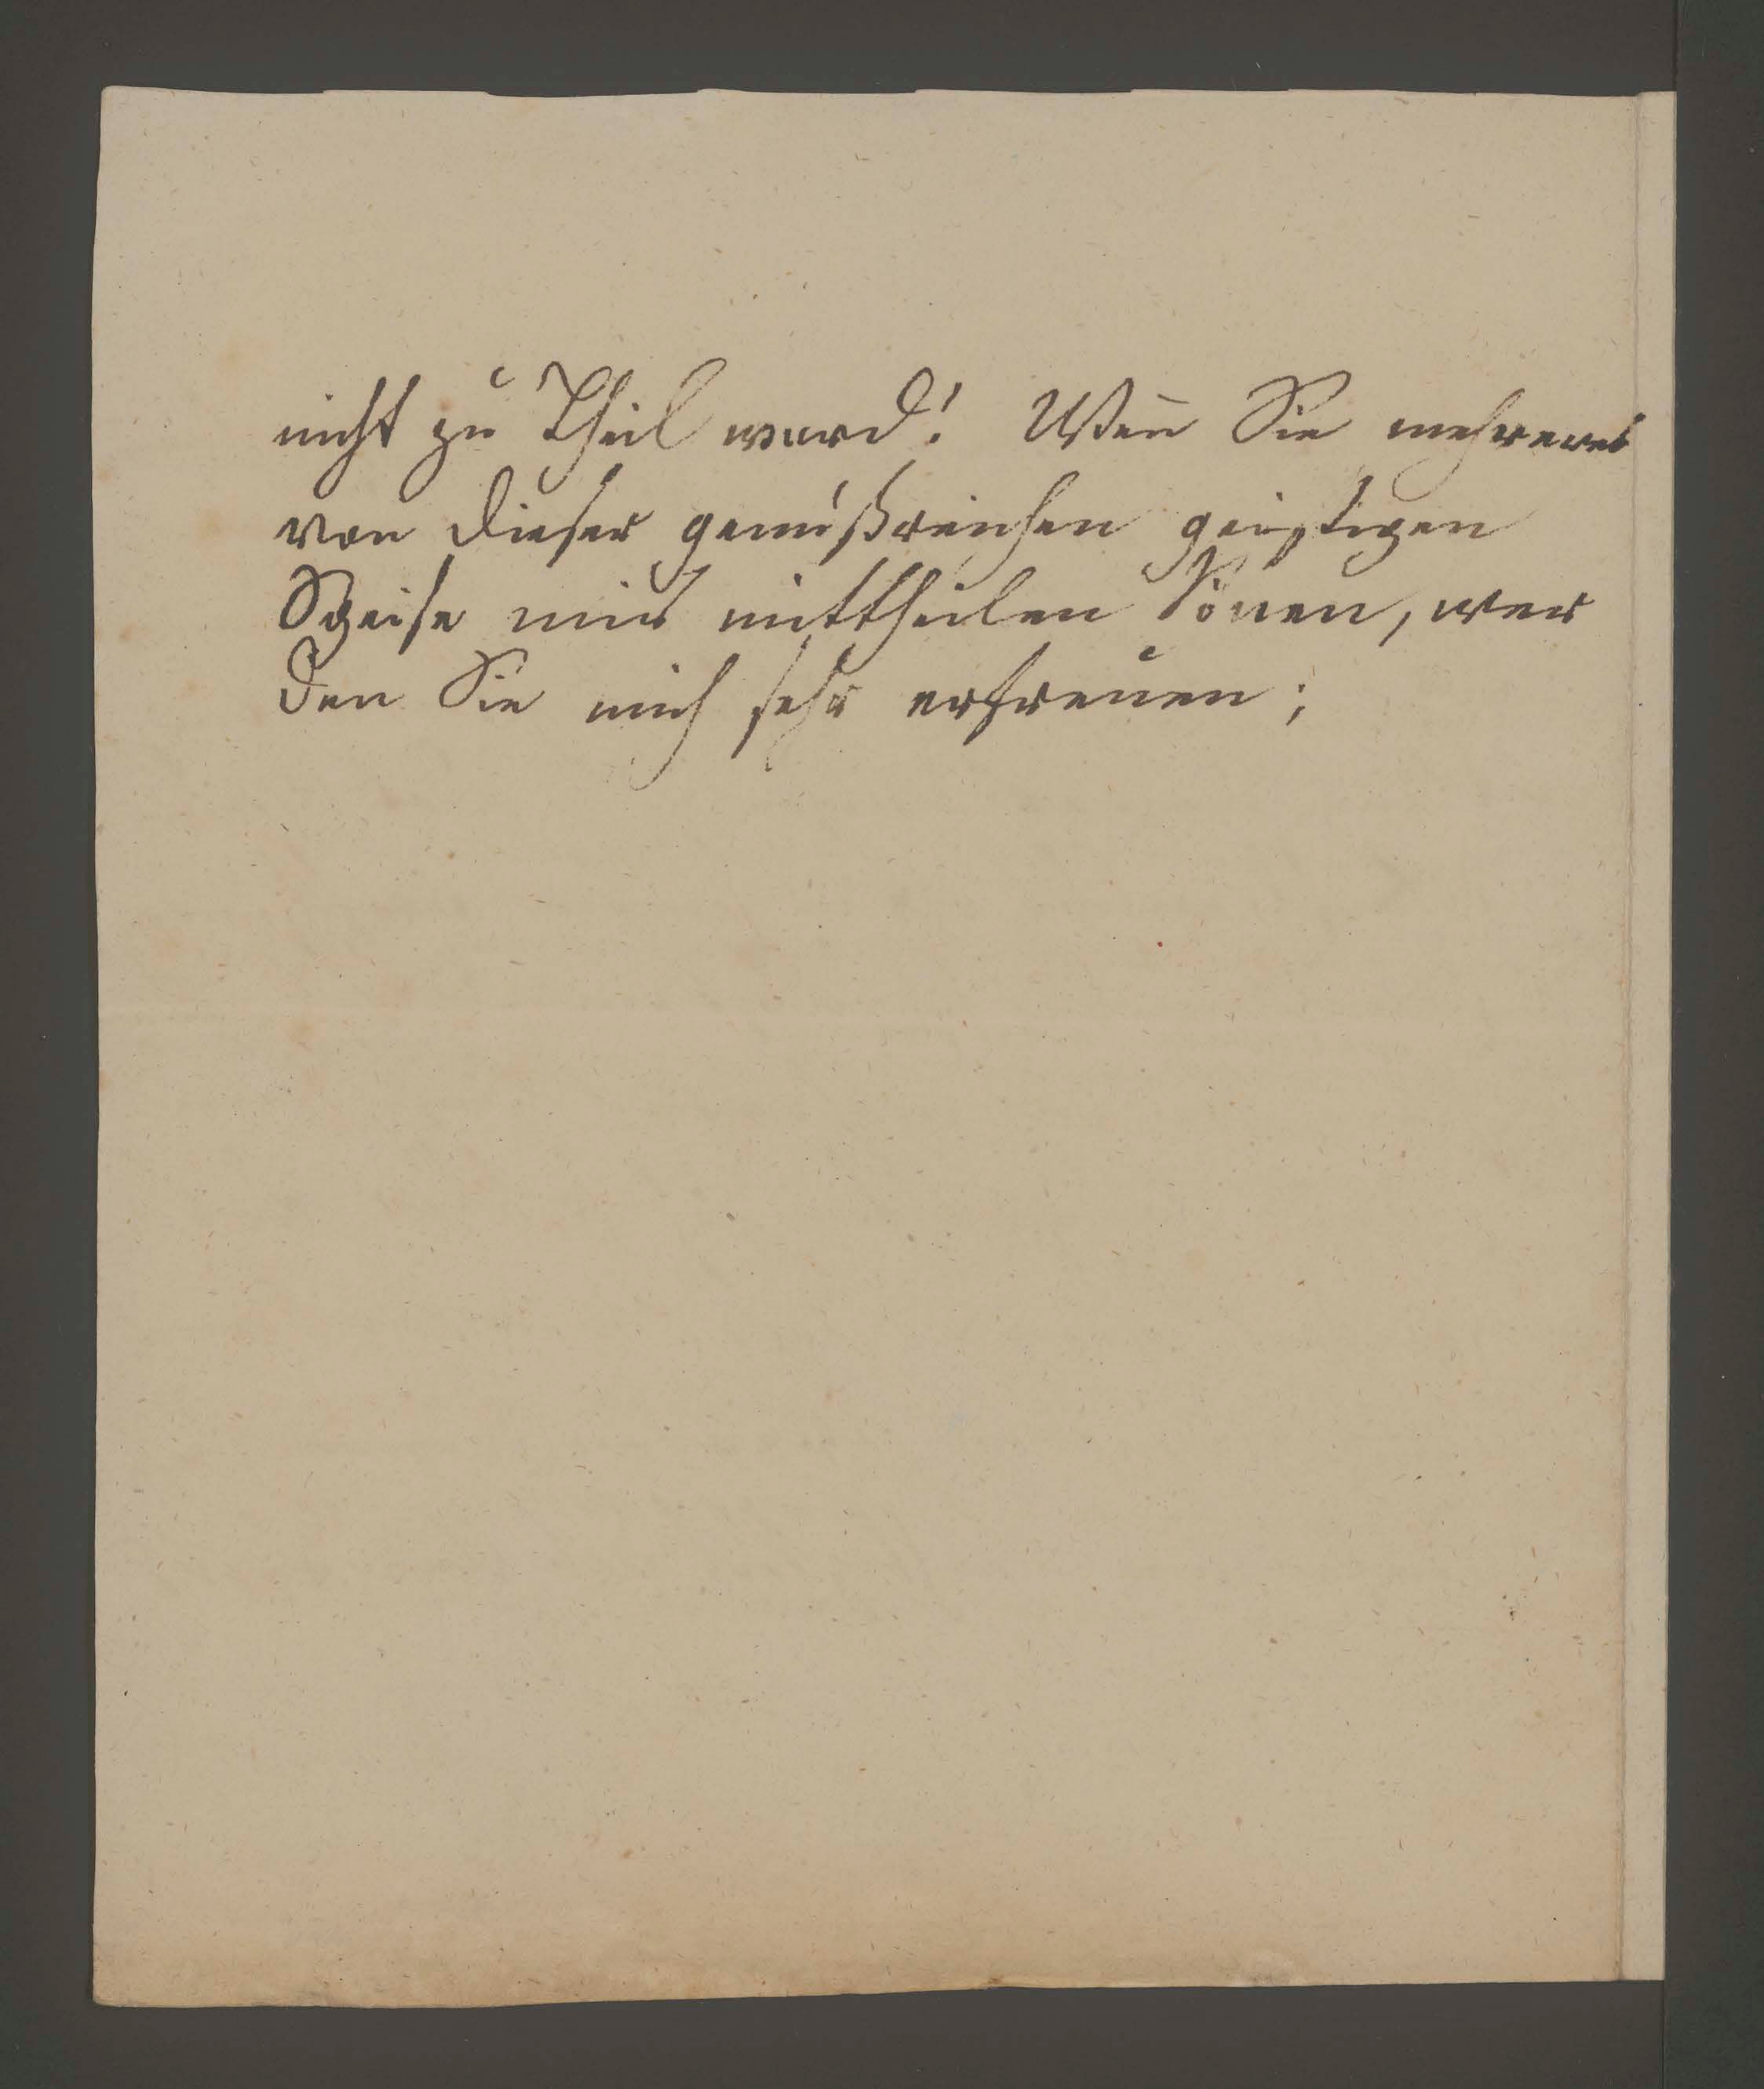 nicht zu Theil ward! Wen̄ Sie mehreres
von dieser genußreichen geistigen
Speise mir mittheilen kön̄en, wer
den Sie mich sehr erfreuen;